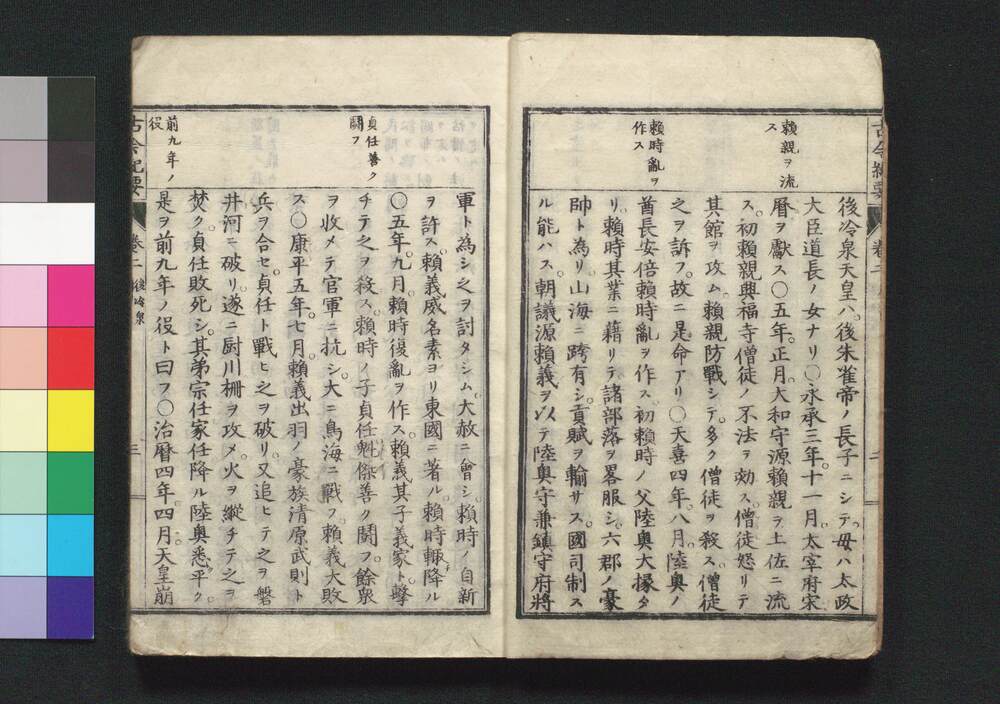 古今紀要
卷二
二
賴親ヲ流
ス
賴時亂ヲ
作ス
後冷泉天皇ハ。後朱雀帝ノ長子ニシテ。母ハ太政
大臣道長ノ女ナリ〇永承三年。十一月。太宰府宋
曆ヲ獻ス〇五年。正月。大和守源賴親ヲ土佐ニ流
ス。初賴親興福寺僧徒ノ不法ヲ劾ス。僧徒怒リテ
其館ヲ攻ム。賴親防戰シテ。多ク僧徒ヲ殺ス。僧徒
之ヲ訴フ。故ニ是命アリ〇天喜四年。八月。陸奥ノ
酋長安倍賴時亂ヲ作ス。初賴時ノ父陸奥大掾タ
リ。賴時其業ニ藉リテ諸部落ヲ畧服シ。六郡ノ豪
帥ト為リ。山海ニ跨有シ。貢賦ヲ輸サス。國司制ス
ル能ハス。朝議源賴義ヲ以テ陸奥守兼鎮守府將
貞任善ク
鬪フ
前九年ノ
役
軍ト為シ之ヲ討タシム。大赦ニ會シ。賴時ノ自新
ヲ許ス。賴義威名素ヨリ東國ニ著ル。賴時輙降ル
〇五年。九月。賴時復亂ヲ作ス。賴義其子義家ト。擊
チテ之ヲ殺ス。賴時ノ子貞任魁傑善ク鬪フ。餘衆
ヲ收メテ官軍ニ抗シ。大ニ鳥海ニ戰フ。賴義大敗
ス〇康平五年。七月。賴義出羽ノ豪族清原武則ト
兵ヲ合セ。貞任ト戰ヒ之ヲ破リ。又追ヒテ之ヲ磐
井河ニ破リ。遂ニ厨川柵ヲ攻メ。火ヲ縱チテ之ヲ
焚ク。貞任敗死シ。其弟宗任家任降ル陸奥悉平ク。
是ヲ前九年ノ役ト曰フ〇治曆四年。四月。天皇崩
古今紀要
卷二
後冷泉
三